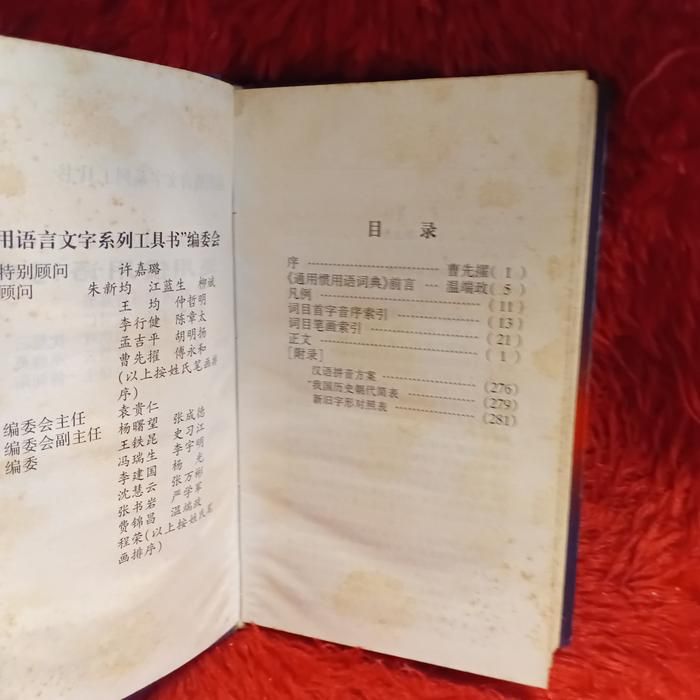 用语言文字系列工具书”编委会
特别顾问 许嘉璐
顾问 朱新均 江蓝生 柳斌
王均 仲哲明
李行健 陈章太
孟吉平 胡明扬
曹先擢 傅永和
(以上按姓氏笔画排
序)
编委会主任 袁贵仁
编委会副主任 杨曙望 张成德
编委 王铁昆 史习江
冯瑞生 李宇明
李建国 杨光
沈慧云 张万彬
张书岩 严学军
费锦昌 温端政
程荣(以上按姓氏笔
画排序)
目录
序 曹先擢(1)
《通用惯用语词典》前言 温端政(5)
凡例 (11)
词目首字音序索引 (13)
词目笔画索引 (21)
正文 (1)
[附录]
汉语拼音方案 (276)
我国历史朝代简表 (279)
新旧字形对照表 (281)